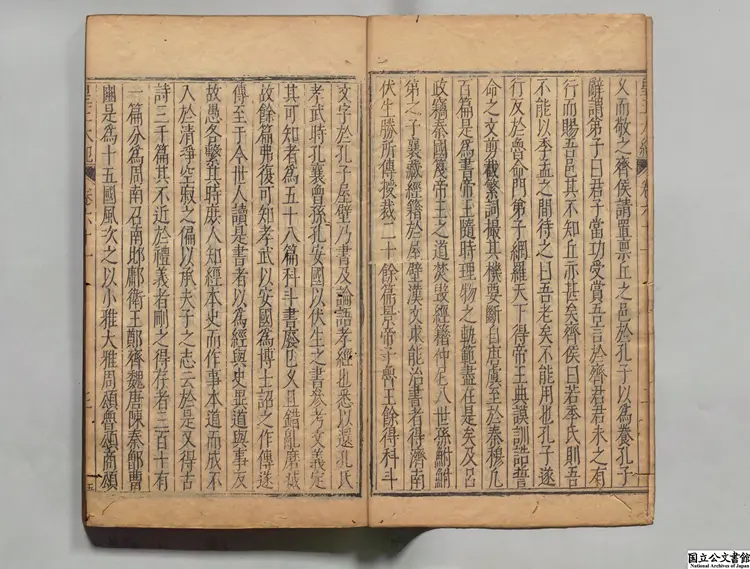 而敬之齊侯請置禀丘之邑於孔子以爲養孔子
辭謂弟子曰君子當功受賞吾言於齊君君未之有
行而賜吾邑其不知丘亦甚矣齊侯曰若季氏則吾
不能以季孟之間待之曰吾老矣不能用也孔子遂
行反於魯命門弟子網羅天下得帝王典謨訓誥誓
命之文剪截繁詞撮其機要斷自唐虞至於秦穆凡
百篇是爲書帝王隨時理物之軌範盡在是矣及呂
政竊秦國蔑帝王之道焚毀經籍仲尼八世孫鮒鮒
弟之子襄藏經籍於屋壁漢文求能治書者得濟南
伏生勝所傳授裁二十餘篇景帝子魯王餘得科斗
文字於孔子屋壁乃書及論語孝經也悉以還孔氏
孝武時孔襄曾孫孔安國以伏生之書參考文義定
其可知者爲五十八篇科斗書廢已久且錯亂磨滅
故餘篇弗復可知孝武以安國爲博士詔之作傳遂
傳至于今世人讀是書者以爲經與史異道與事反
故愚各繫其時庶人知經本史而作事本道而成不
入於清淨空寂之偏以承夫子之志云於是又得古
詩三千篇其不近於禮義者刪之得存者三百十有
一篇分爲周南召南邶鄘衛王鄭齊魏唐陳秦鄶曹
豳是爲十五國風次之以小雅大雅周頌魯頌商頌
国立公文書館
National Archives of Japan